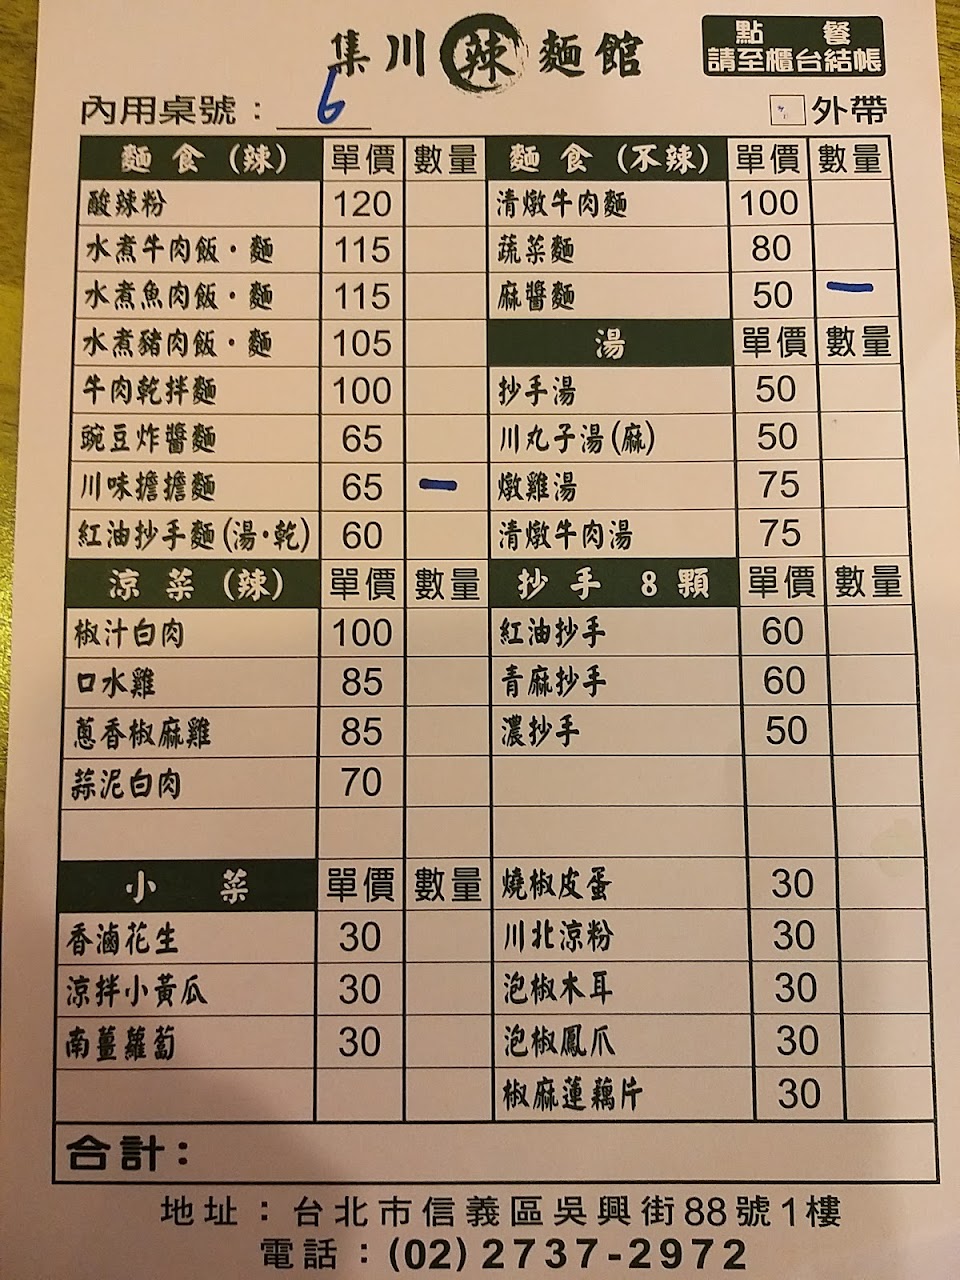 集川辣麵館
點餐
請至櫃台結帳
內用桌號：6
外帶
麵食(辣) 單價 數量 麵食(不辣) 單價 數量
酸辣粉 120 清燉牛肉麵 100
水煮牛肉飯・麵 115 蔬菜麵 80
水煮魚肉飯・麵 115 麻醬麵 50 一
水煮豬肉飯・麵 105 湯 單價 數量
牛肉乾拌麵 100 抄手湯 50
豌豆炸醬麵 65 川丸子湯(麻) 50
川味擔擔麵 65 一 燉雞湯 75
紅油抄手麵(湯・乾) 60 清燉牛肉湯 75
涼菜(辣) 單價 數量 抄手8顆 單價 數量
椒汁白肉 100 紅油抄手 60
口水雞 85 青麻抄手 60
蔥香椒麻雞 85 濃抄手 50
蒜泥白肉 70
小菜 單價 數量 燒椒皮蛋 30
香滷花生 30 川北涼粉 30
涼拌小黃瓜 30 泡椒木耳 30
南薑蘿蔔 30 泡椒鳳爪 30
椒麻蓮藕片 30
合計：
地址：台北市信義區吳興街88號1樓
電話：(02)2737-2972